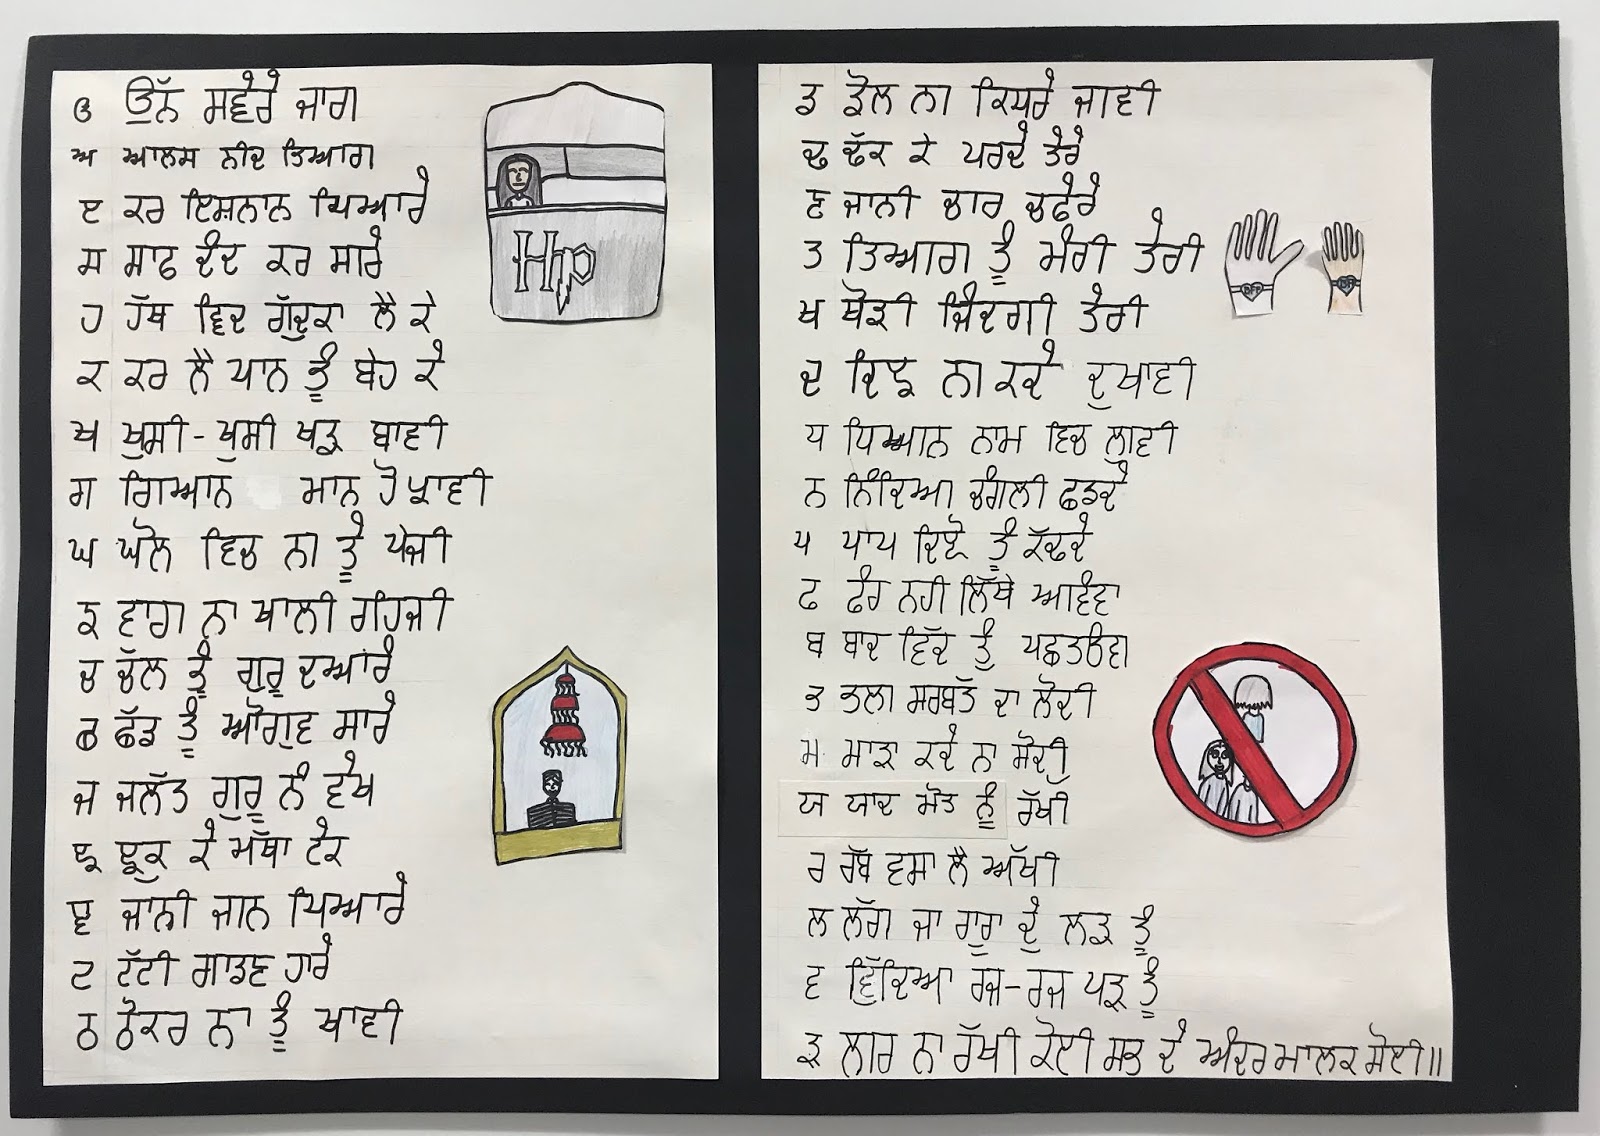 ੳ ਉੱਠ ਸਵੇਰੇ ਜਾਗ
ਅ ਆਲਸ ਨੀਦ ਤਿਆਗ
ੲ ਕਰ ਇਸ਼ਨਾਨ ਪਿਆਰੇ
ਸ ਸਾਫ ਦੰਦ ਕਰ ਸਾਰੇ
ਹ ਹੱਥ ਵਿਚ ਗੁੱਟਕਾ ਲੈ ਕੇ
ਕ ਕਰ ਲੈ ਪਾਠ ਤੂੰ ਬੇਹ ਕੇ
ਖ ਖੁਸ਼ੀ-ਖੁਸ਼ੀ ਖੜ ਬਾਣੀ
ਗ ਗਿਆਨ ਮਾਨ ਹੋ ਪ੍ਰਾਣੀ
ਘ ਘੋਲ ਵਿਚ ਨਾ ਤੂੰ ਪੇਜੀ
ਙ ਵਾਗ ਨਾ ਖਾਲੀ ਰਹਿਜੀ
ਚ ਚੱਲ ਤੂੰ ਗੁਰੂ ਦਆਰੇ
ਛ ਛੱਡ ਤੂੰ ਔਗੁਣ ਸਾਰੇ
ਜ ਜਲੱਤ ਗੁਰੂ ਨੀ ਵੇਖ
ਝ ਝੁਕ ਕੇ ਮੱਥਾ ਟੇਕ
ਞ ਜਾਨੀ ਜਾਨ ਪਿਆਰੇ
ਟ ਟੱਟੀ ਗਾਡਣ ਹਾਰੇ
ਠ ਠੋਕਰ ਨਾ ਤੂੰ ਖਾਵੀ
ਡ ਡੋਲ ਨਾ ਕਿਧਰੇ ਜਾਵੀ
ਢ ਢੱਕ ਕੇ ਪਰਦੇ ਤੇਰੇ
ਣ ਜਾਨੀ ਚਾਰ ਚਫੇਰੇ
ਤ ਤਿਆਗ ਤੂੰ ਮੇਰੀ ਤੇਰੀ
ਥ ਥੋੜੀ ਜ਼ਿੰਦਗੀ ਤੇਰੀ
ਦ ਦਿਲ ਨਾ ਕਦੇ ਦੁਖਾਵੀ
ਧ ਧਿਆਨ ਨਾਮ ਵਿਚ ਲਾਵੀ
ਨ ਨਿੰਦਿਆ ਚੁੰਗਲੀ ਛਡਦੇ
ਪ ਪਾਪ ਦਿਲੋਂ ਤੂੰ ਕੱਢਦੇ
ਫ ਫੇਰ ਨਹੀ ਲਿੱਥੇ ਆਵੇਂਗਾ
ਬ ਬਾਦ ਵਿੱਚ ਤੂੰ ਪਛਤਾਵੇਂਗਾ
ਭ ਭਲਾ ਸਰਬੱਤ ਦਾ ਲੋਚੀ
ਮ ਮਾੜਾ ਕਦੇ ਨਾ ਸੋਚੀ
ਯ ਯਾਦ ਮੋਤ ਨੂੰ ਰੱਖੀ
ਰ ਰੱਬ ਵਸਾ ਲੈ ਅੱਖੀ
ਲ ਲੱਗ ਜਾ ਗੁਰਾ ਦੇ ਲੜ ਤੂੰ
ਵ ਵਿੱਦਿਆ ਰਜ-ਰਜ ਪੜ ਤੂੰ
ੜ ਲਾਰ ਨਾ ਰੱਖੀ ਕੋਈ ਸਭ ਦੇ ਅੰਦਰ ਮਾਲਕ ਸੋਈ॥
HP
BFF
BFF